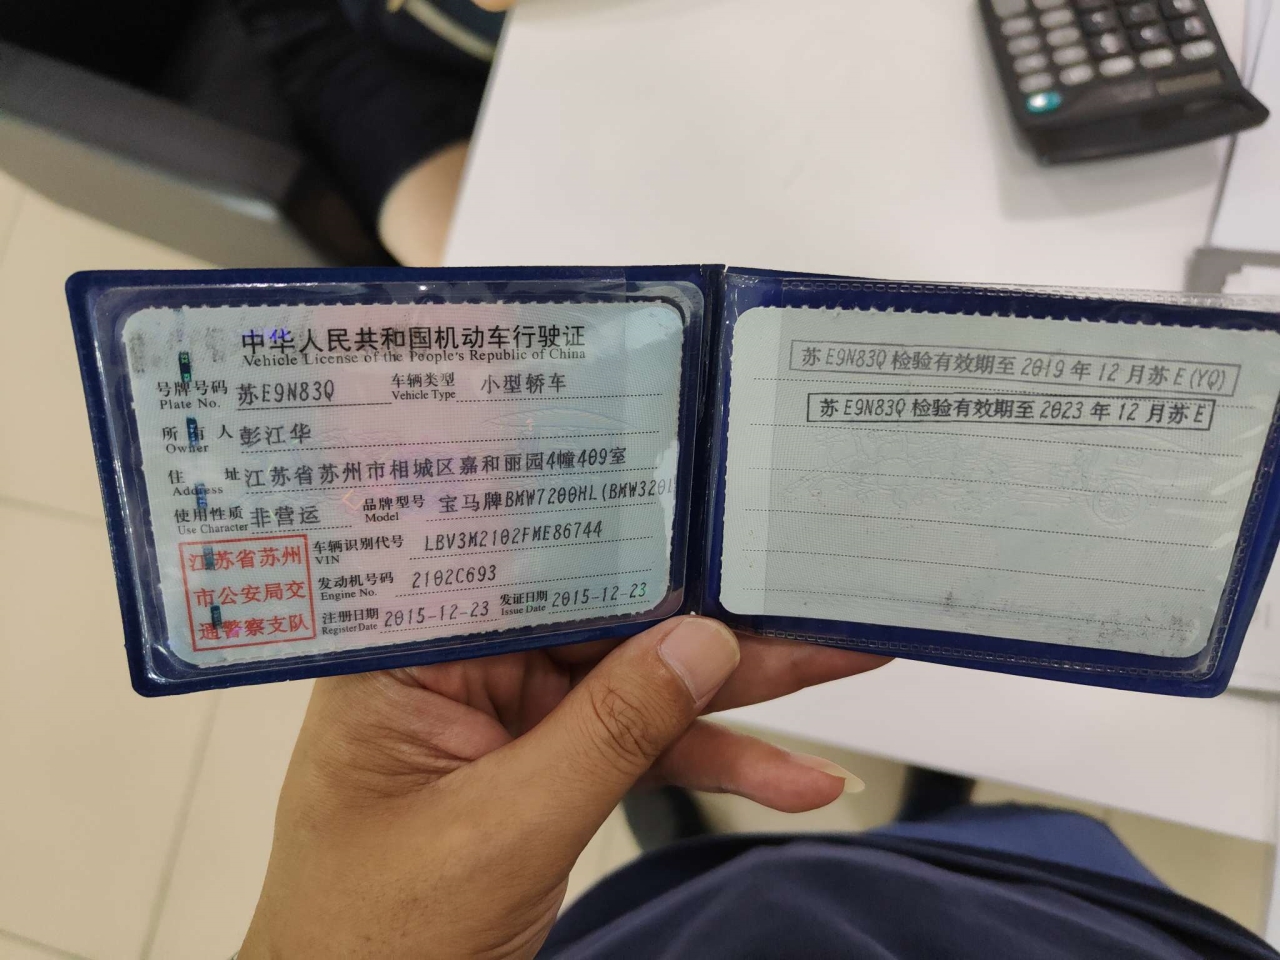 中华人民共和国机动车行驶证
Vehicle License of the People's Republic of China
号牌号码 苏E9N83Q 车辆类型 小型轿车
Plate No. Vehicle Type
所有人 彭江华
Owner
住址 江苏省苏州市相城区嘉和丽园4幢409室
Address
使用性质 非营运 品牌型号 宝马牌BMW7200HL(BMW320L
Use Character Model
江苏省苏州
市公安局交
通警察支队
车辆识别代号 LBV3M2102FME86744
VIN
发动机号码 2102C693
Engine No.
注册日期 2015-12-23 发证日期 2015-12-23
Register Date Issue Date
苏E9N83Q检验有效期至2019年12月苏E(YQ)
苏E9N83Q检验有效期至2023年12月苏E